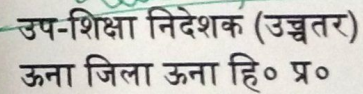 उप-शिक्षा निदेशक (उच्चतर)
ऊना जिला ऊना हि० प्र०